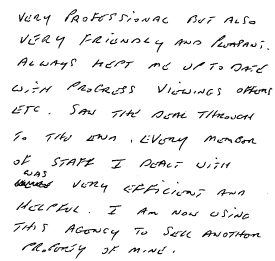 VERY PROFESSIONAL BUT ALSO
VERY FRIENDLY AND PLEASANT.
ALWAYS KEPT ME UP TO DATE
WITH PROGRESS VIEWINGS OFFERS
ETC. SAW THE DEAL THROUGH
TO THE END. EVERY MEMBER
OF STAFF I DEALT WITH
WAS VERY EFFICIENT AND
HELPFUL. I AM NOW USING
THIS AGENCY TO SELL ANOTHER
PROPERTY OF MINE.